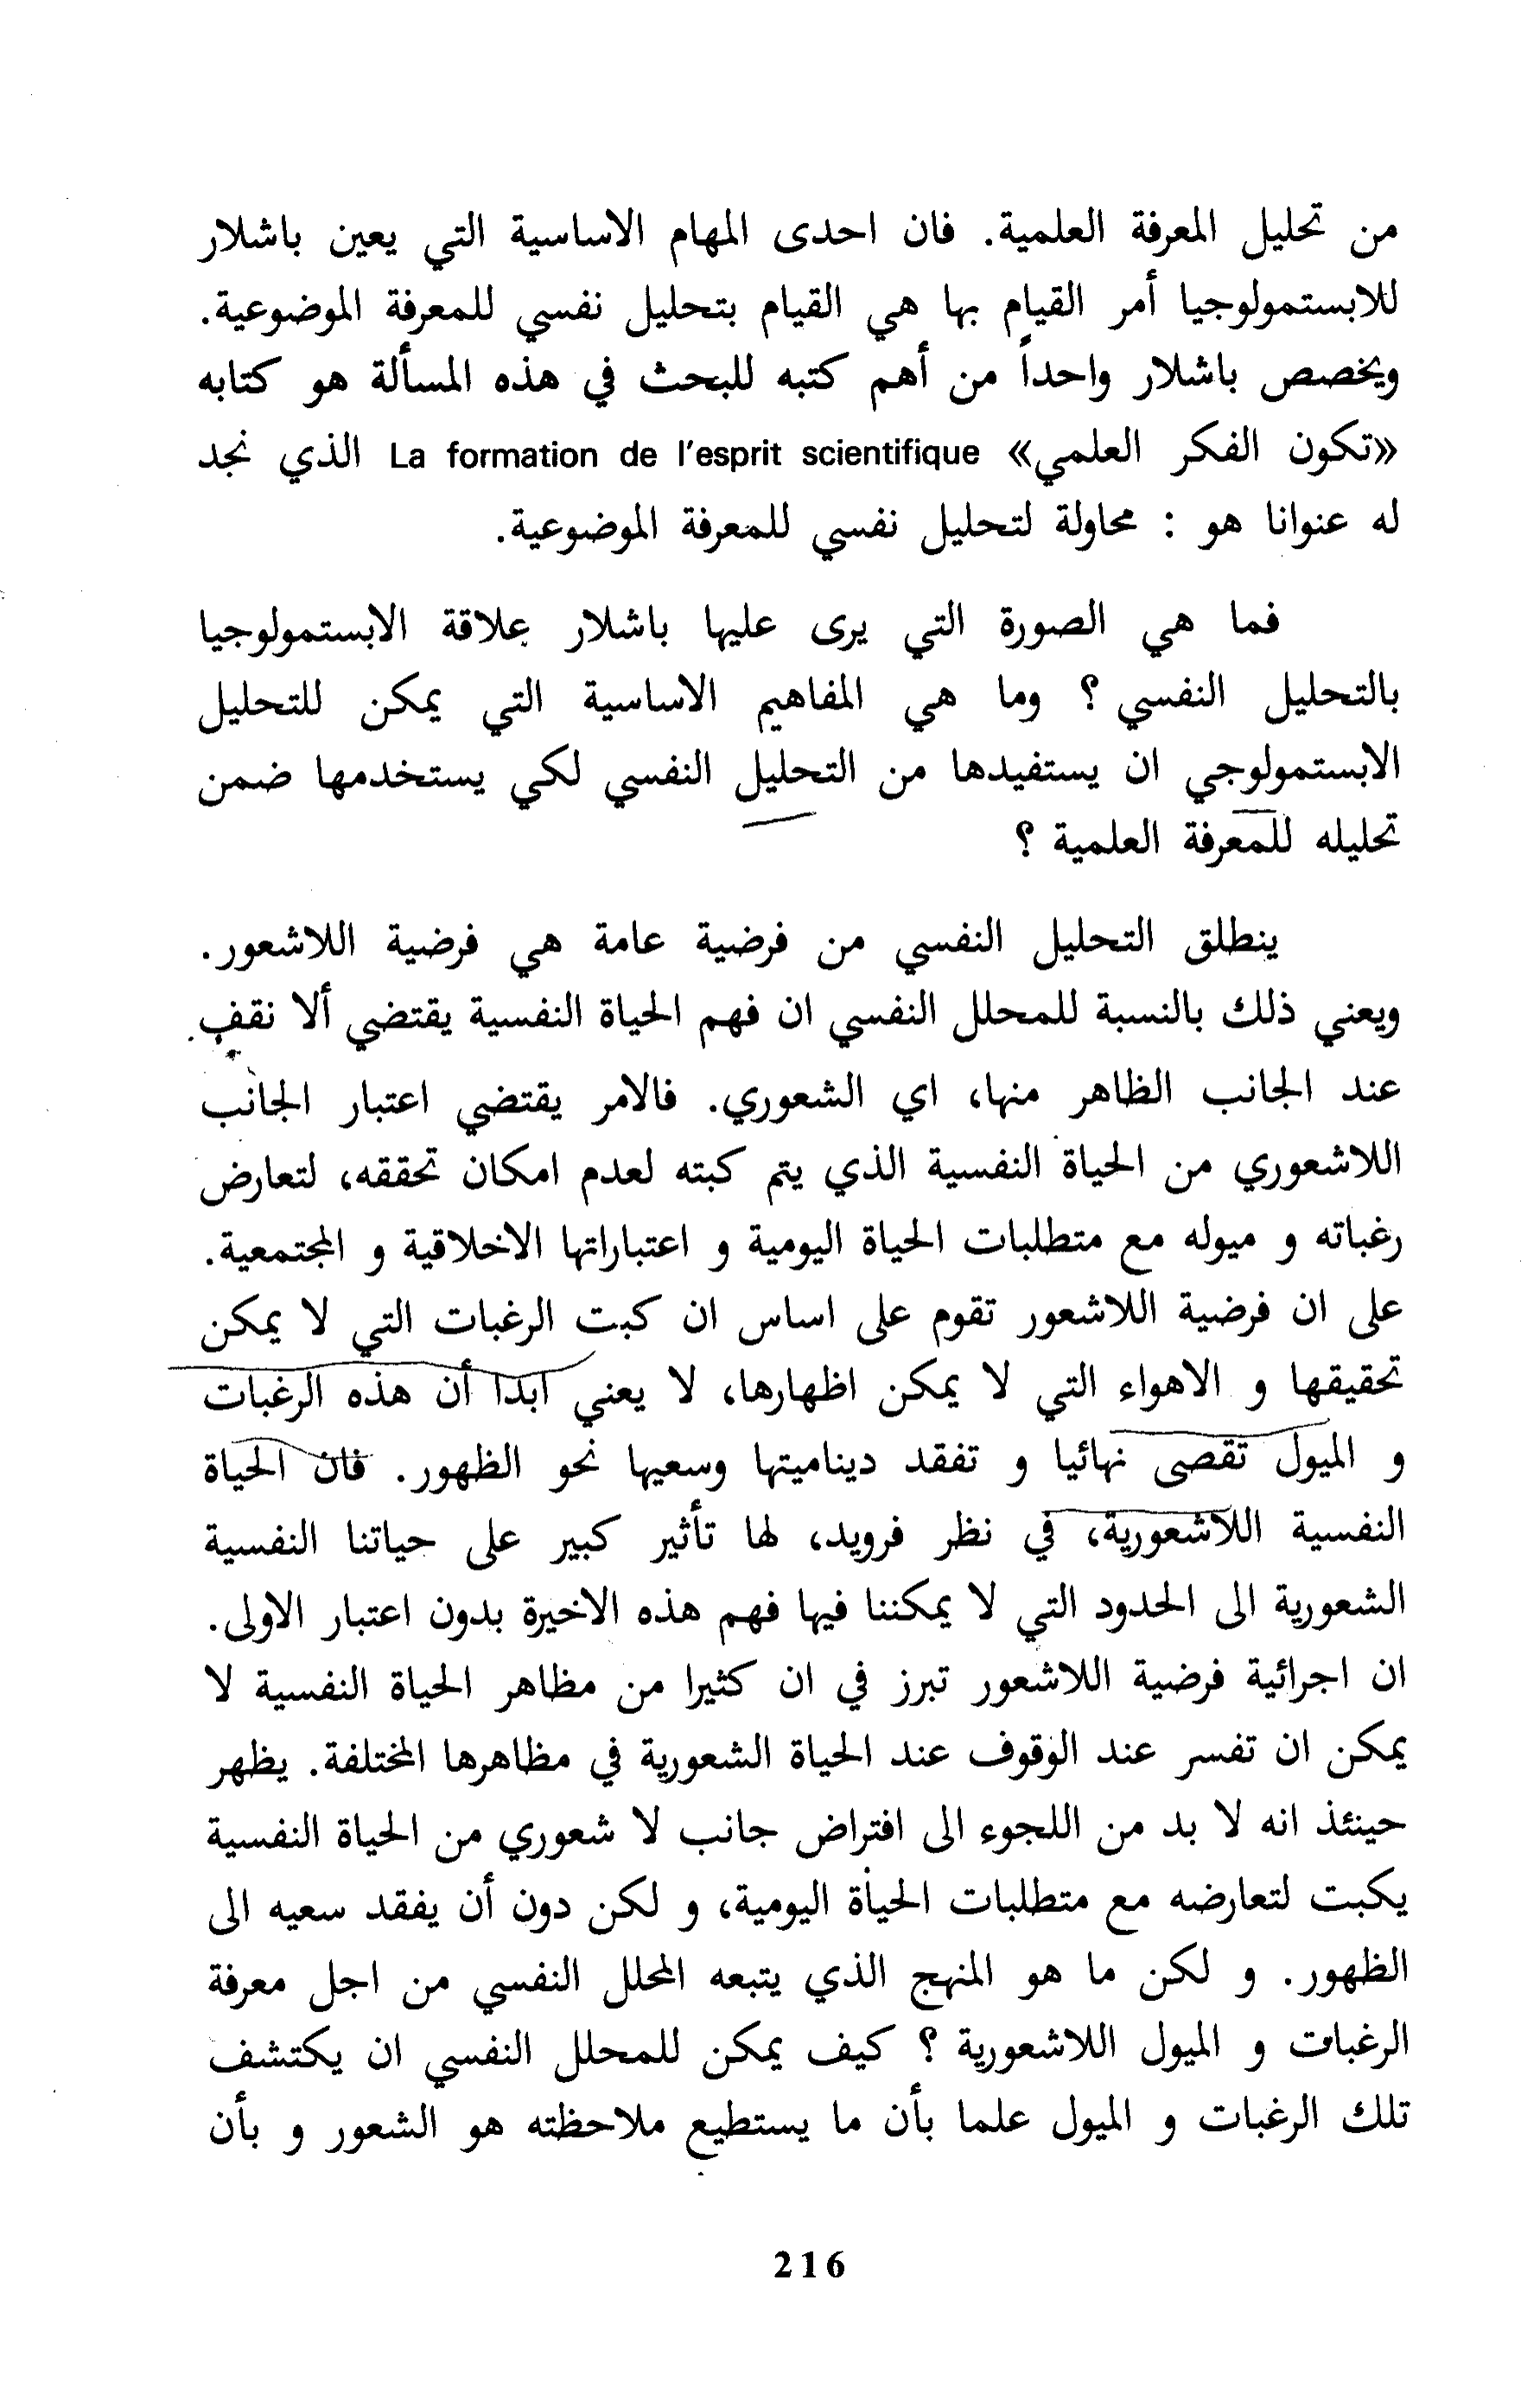 من تحليل المعرفة العلمية. فان احدى المهام الاساسية التي يعين باشلار
للابستمولوجيا أمر القيام بها هي القيام بتحليل نفسي للمعرفة الموضوعية.
ويخصص باشلار واحداً من أهم كتبه للبحث في هذه المسألة هو كتابه
«تكون الفكر العلمي» La formation de l'esprit scientifique الذي نجد
له عنوانا هو : محاولة لتحليل نفسي للمعرفة الموضوعية.
فما هي الصورة التي يرى عليها باشلار علاقة الابستمولوجيا
بالتحليل النفسي ؟ وما هي المفاهيم الاساسية التي يمكن للتحليل
الابستمولوجي ان يستفيدها من التحليل النفسي لكي يستخدمها ضمن
تحليله للمعرفة العلمية ؟
ينطلق التحليل النفسي من فرضية عامة هي فرضية اللاشعور.
ويعني ذلك بالنسبة للمحلل النفسي ان فهم الحياة النفسية يقتضي ألا نقف
عند الجانب الظاهر منها، اي الشعوري. فالامر يقتضي اعتبار الجانب
اللاشعوري من الحياة النفسية الذي يتم كبته لعدم امكان تحققه، لتعارض
رغباته و ميوله مع متطلبات الحياة اليومية و اعتباراتها الاخلاقية و المجتمعية.
على ان فرضية اللاشعور تقوم على اساس ان كبت الرغبات التي لا يمكن
تحقيقها و الاهواء التي لا يمكن اظهارها، لا يعني ابدا أن هذه الرغبات
و الميول تقصى نهائيا و تفقد ديناميتها وسعيها نحو الظهور. فان الحياة
النفسية اللاشعورية، في نظر فرويد، لها تأثير كبير على حياتنا النفسية
الشعورية الى الحدود التي لا يمكننا فيها فهم هذه الاخيرة بدون اعتبار الاولى.
ان اجرائية فرضية اللاشعور تبرز في ان كثيرا من مظاهر الحياة النفسية لا
يمكن ان تفسر عند الوقوف عند الحياة الشعورية في مظاهرها المختلفة. يظهر
حينئذ انه لا بد من اللجوء الى افتراض جانب لا شعوري من الحياة النفسية
يكبت لتعارضه مع متطلبات الحياة اليومية، و لكن دون أن يفقد سعيه الى
الظهور. و لكن ما هو المنهج الذي يتبعه المحلل النفسي من اجل معرفة
الرغبات و الميول اللاشعورية ؟ كيف يمكن للمحلل النفسي ان يكتشف
تلك الرغبات و الميول علما بأن ما يستطيع ملاحظته هو الشعور و بأن
216